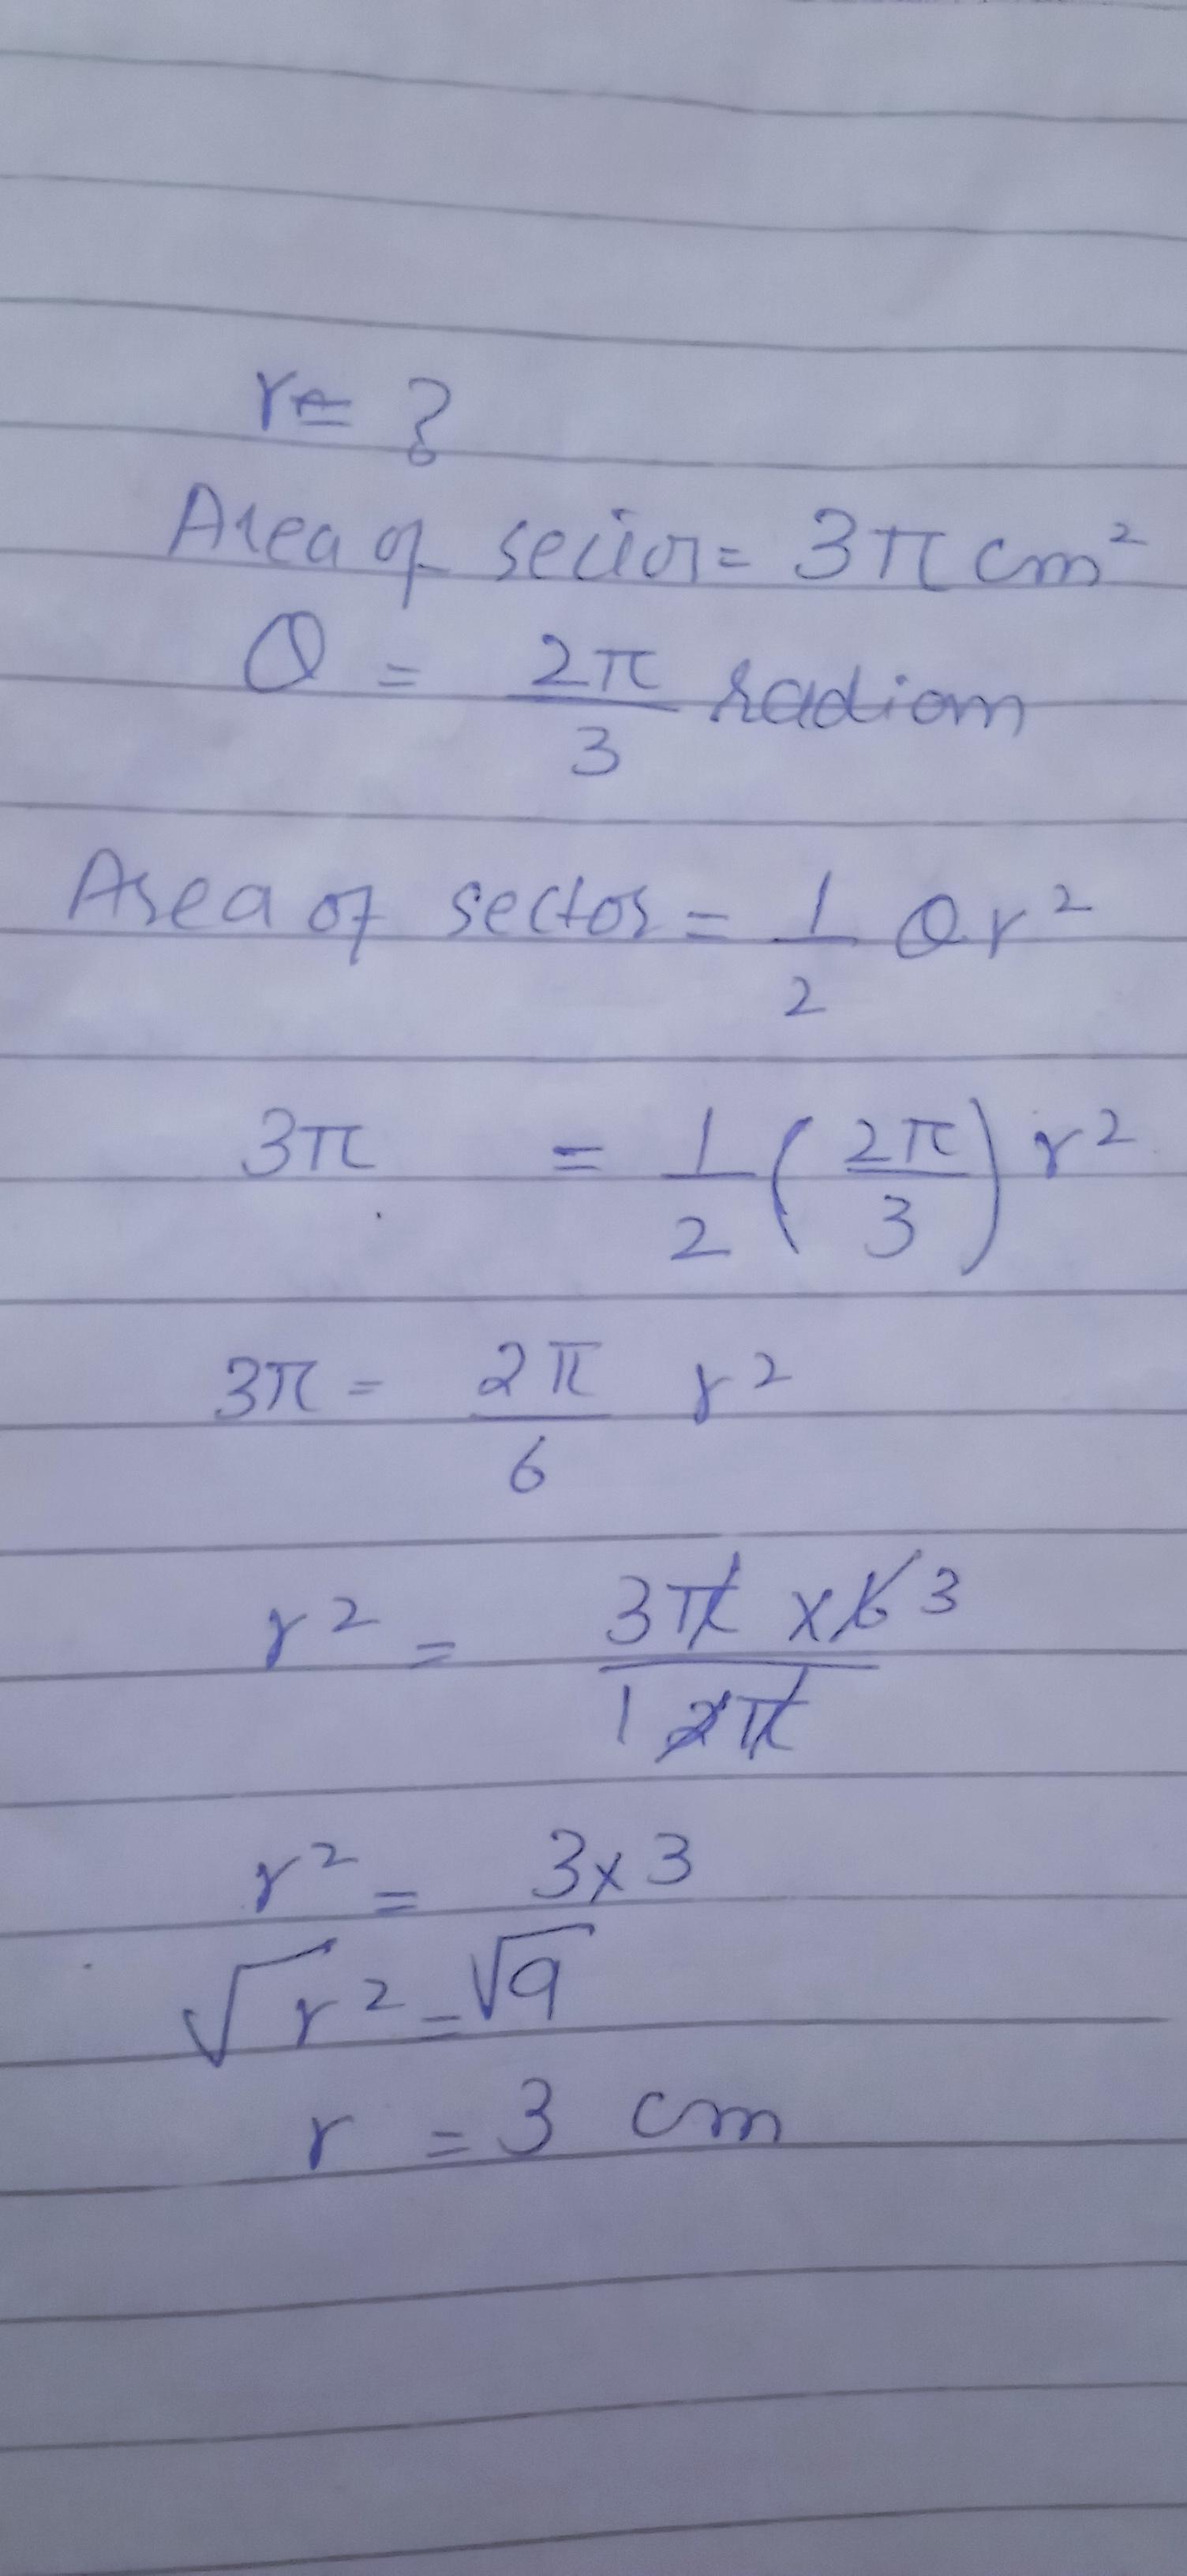 r = ?
Area of sector = 3π cm²
θ = 2π/3 radian
Area of sector = 1/2 θ r²
3π = 1/2 (2π/3) r²
3π = 2π/6 r²
r² = 3π × 6 3 / 1 2π
r² = 3 × 3
√r² = √9
r = 3 cm